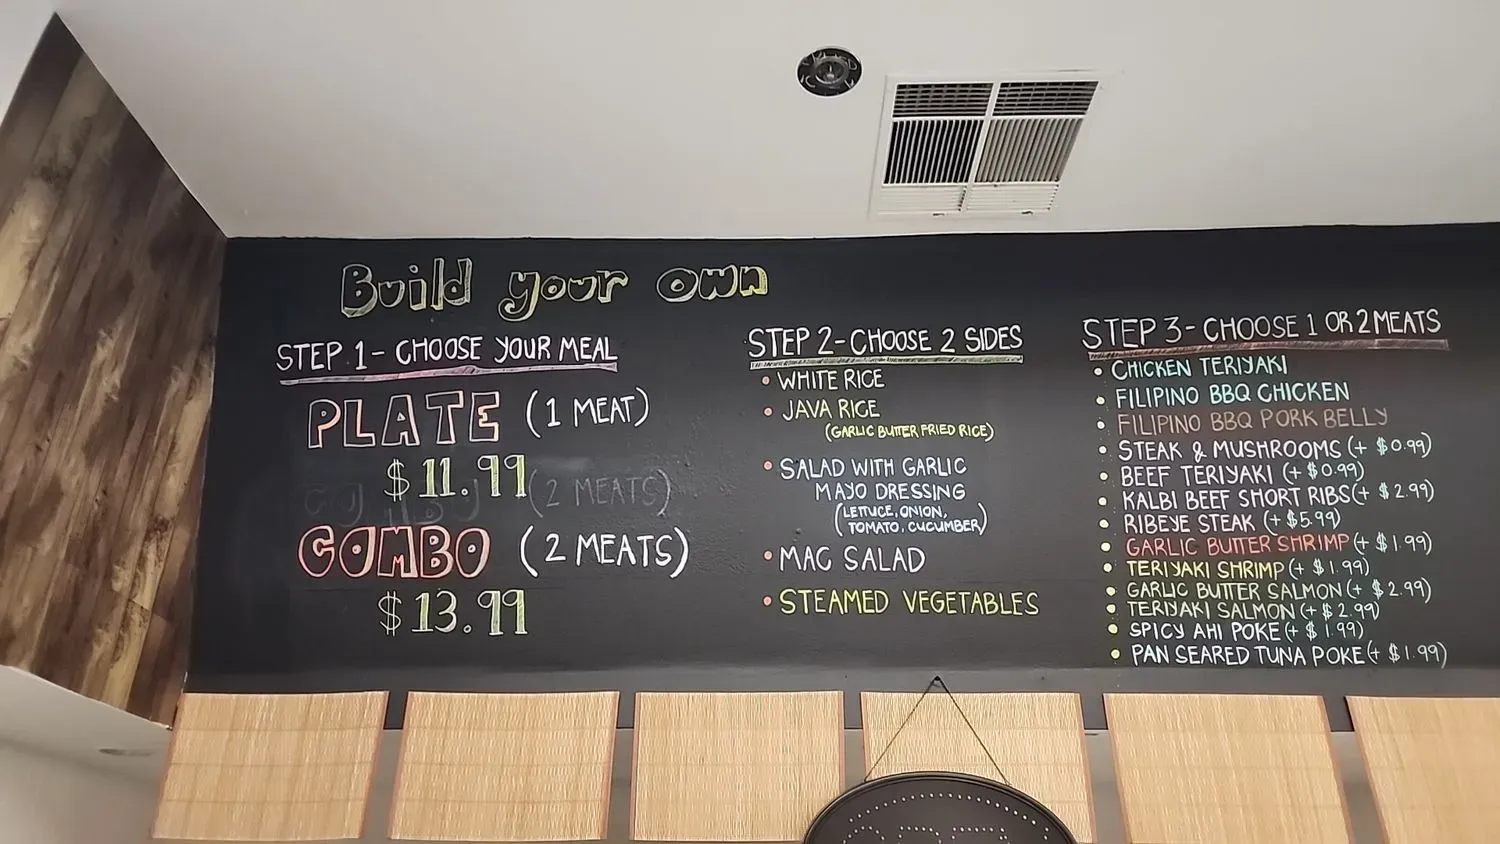 Build your own
STEP 1- CHOOSE YOUR MEAL
PLATE (1 MEAT)
$11.99
(2 MEATS)
COMBO (2 MEATS)
$13.99
STEP 2-CHOOSE 2 SIDES
• WHITE RICE
• JAVA RICE
(GARLIC BUTTER FRIED RICE)
• SALAD WITH GARLIC
MAYO DRESSING
(LETTUCE, ONION,
TOMATO, CUCUMBER)
• MAC SALAD
• STEAMED VEGETABLES
STEP 3- CHOOSE 1 OR 2 MEATS
• CHICKEN TERIYAKI
• FILIPINO BBQ CHICKEN
• FILIPINO BBQ PORK BELLY
• STEAK & MUSHROOMS (+ $0.99)
• BEEF TERIYAKI (+ $0.99)
• KALBI BEEF SHORT RIBS (+ $2.99)
• RIBEYE STEAK (+ $5.99)
• GARLIC BUTTER SHRIMP (+ $1.99)
• TERIYAKI SHRIMP (+ $1.99)
• GARLIC BUTTER SALMON (+ $2.99)
• TERIYAKI SALMON (+ $2.99)
• SPICY AHI POKE (+ $1.99)
• PAN SEARED TUNA POKE (+ $1.99)